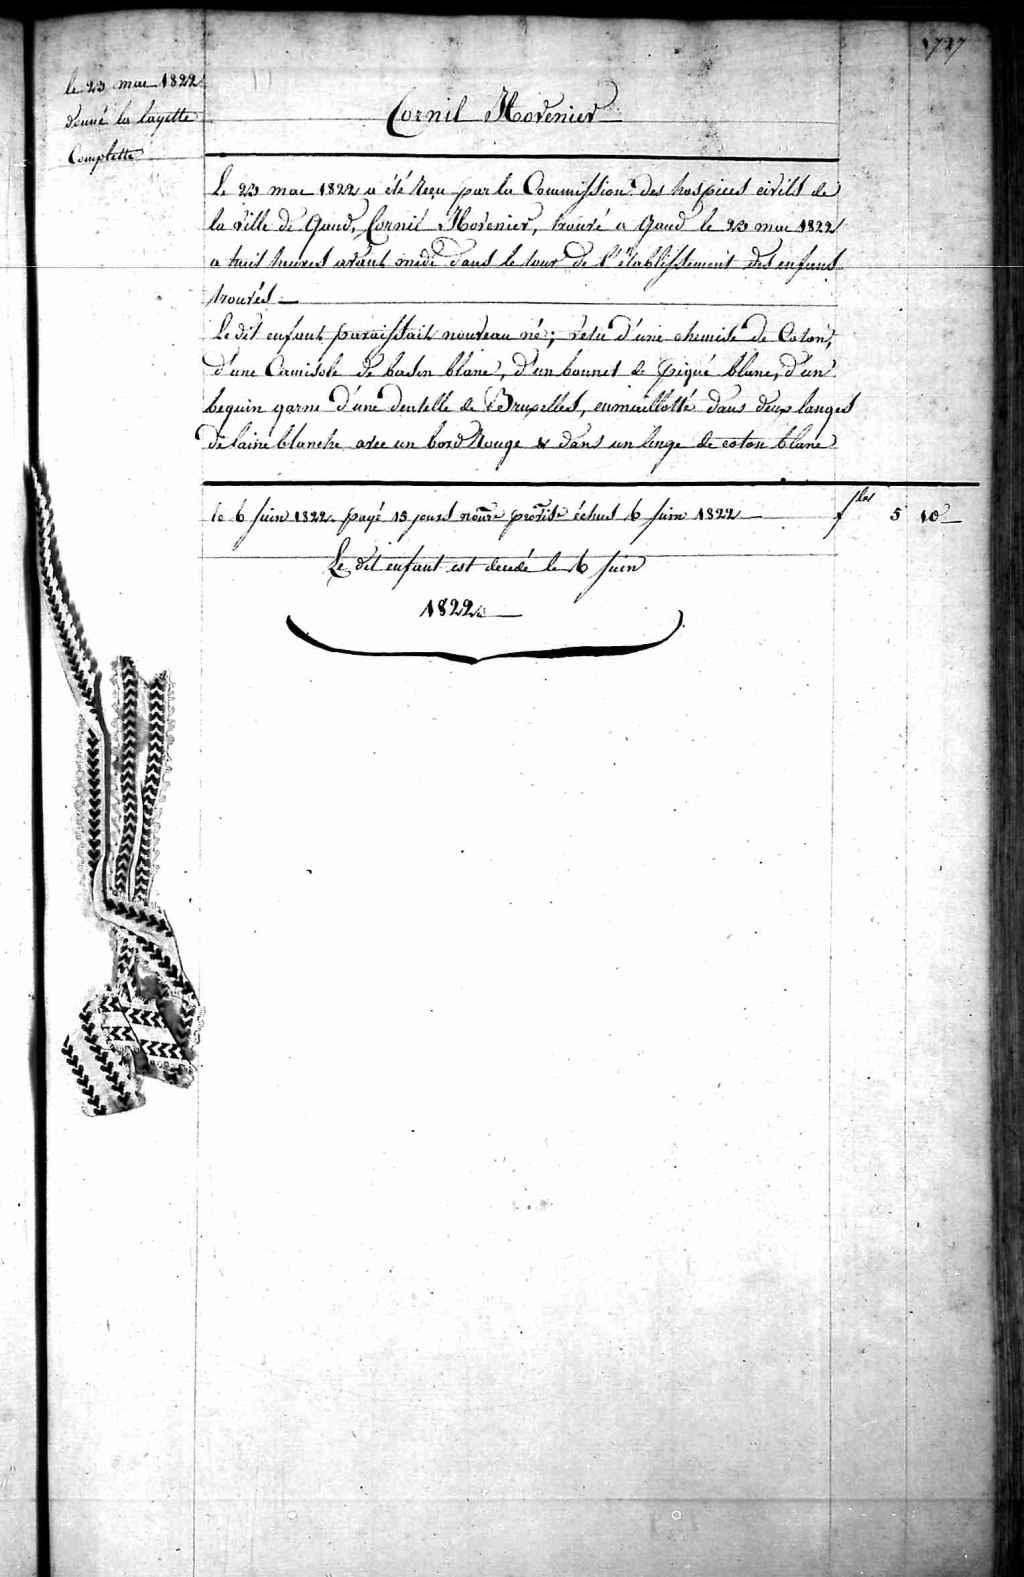 1727
le 23 mai 1822
donné la layette
Complette
Cornil Hovenier
Le 23 mai 1822 a été Reçu par la Commission des hospices civils de
la ville de Gand, Cornil Hovenier, trouvé a Gand le 23 mai 1822
a trois heures avant midi dans le tour de l'établissement des enfans
trouvés
Le dit enfant paraissait nouveau né; vetu d'une chemise de Coton,
d'une Camisole de basin blanc, d'un bonnet de piqué blanc, d'un
beguin garni d'une dentelle de Bruxelles, enmaillotté dans deux langes
de laine blanche avec un bord Rouge & dans un lange de coton blanc
le 6 Juin 1822 payé 15 jours nourre provise échus 6 Juin 1822 f 5 10
Le dit enfant est decedé le 6 Juin
1822